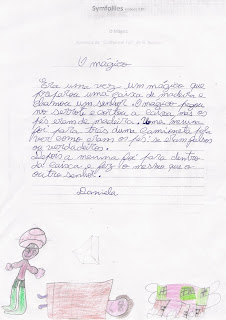 Symfollies
O mágico
O mágico
Era uma vez um mágico que
uma caixa de madeira e
um senhor. O mágico pegou
no serrote e cortou a caixa, mas os
pés eram de madeira. Uma menina
foi para trás duma camioneta pela
ver como eram os pés: se eram falsos
ou verdadeiros.
Depois a menina foi para dentro
da caixa e fez o mesmo que o
outro senhor.
Daniela